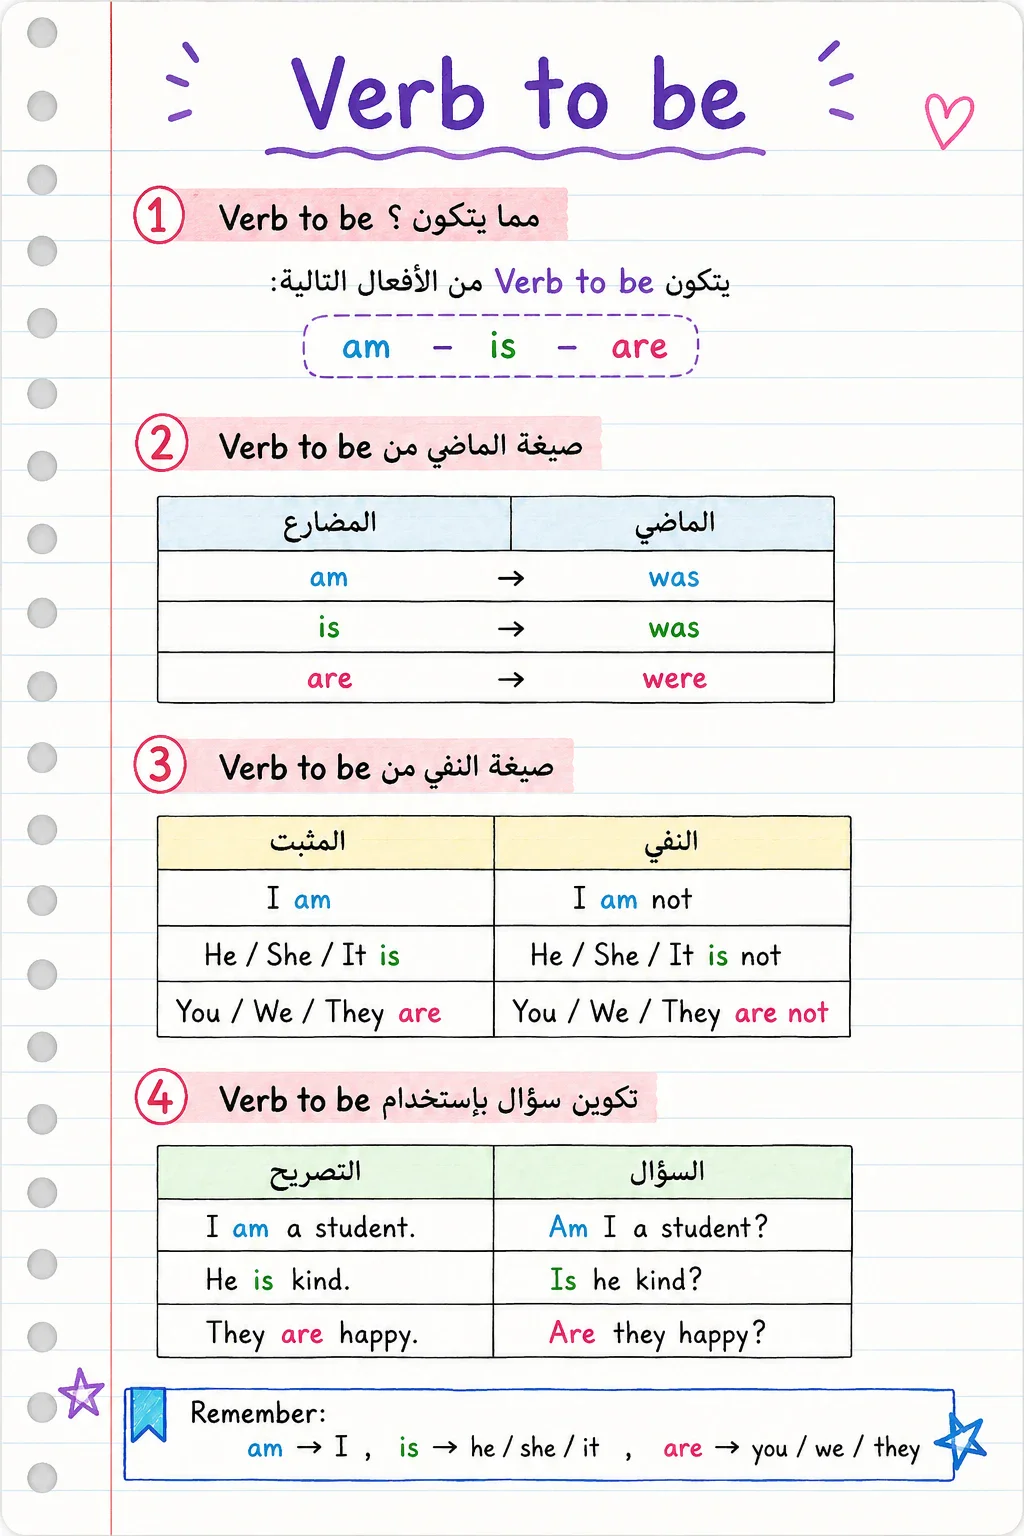 Verb to be
1 Verb to be مما يتكون ؟
يتكون Verb to be من الأفعال التالية:
am – is – are
2 صيغة الماضي من Verb to be
المضارع الماضي
am → was
is → was
are → were
3 صيغة النفي من Verb to be
المثبت النفي
I am I am not
He / She / It is He / She / It is not
You / We / They are You / We / They are not
4 تكوين سؤال بإستخدام Verb to be
التصريح السؤال
I am a student. Am I a student?
He is kind. Is he kind?
They are happy. Are they happy?
Remember:
am → I , is → he / she / it , are → you / we / they